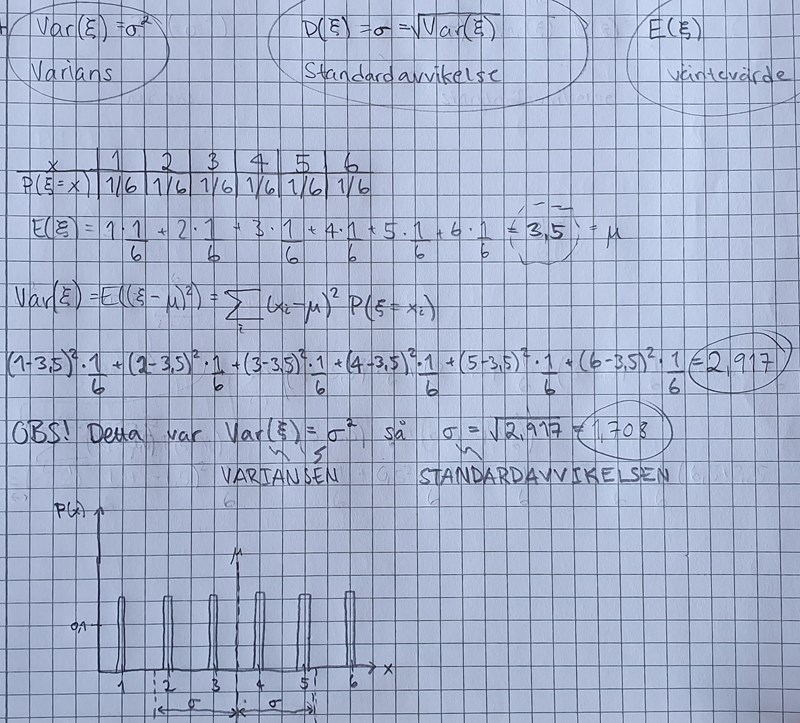 Var(ξ) = σ² D(ξ) = σ = √Var(ξ) E(ξ)
Varians Standardavvikelse väntevärde
x 1 2 3 4 5 6
P(ξ=x) 1/6 1/6 1/6 1/6 1/6 1/6
E(ξ) = 1·1/6 + 2·1/6 + 3·1/6 + 4·1/6 + 5·1/6 + 6·1/6 = 3,5 = μ
Var(ξ) = E((ξ-μ)²) = ∑i (xi-μ)² P(ξ=xi)
(1-3,5)²·1/6 + (2-3,5)²·1/6 + (3-3,5)²·1/6 + (4-3,5)²·1/6 + (5-3,5)²·1/6 + (6-3,5)²·1/6 = 2,917
OBS! Detta var Var(ξ) = σ², så σ = √2,917 = 1,708
VARIANSEN STANDARDAVVIKELSEN
P(x)
μ
0,1
x
1 2 3 4 5 6
σ σ